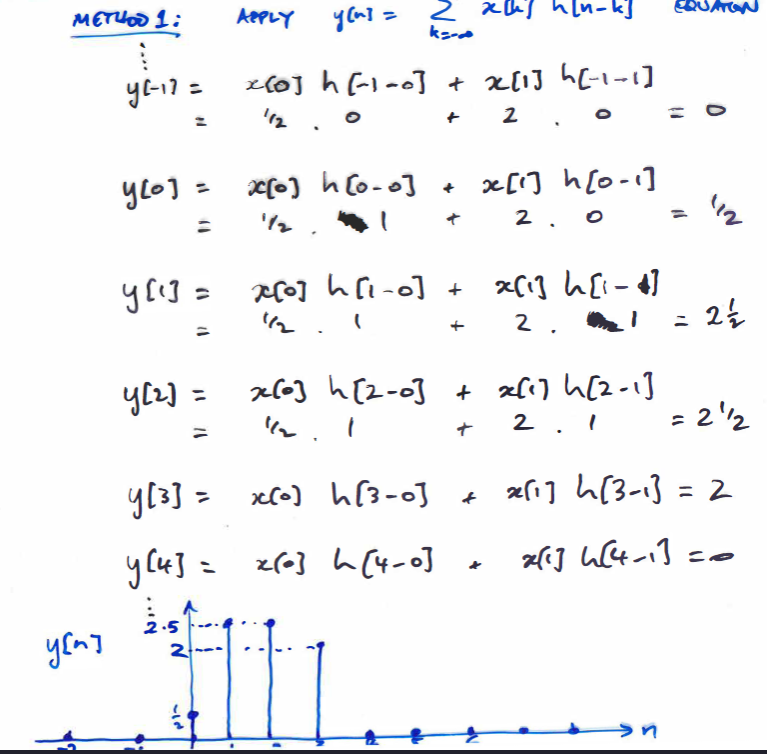 METHOD 1: APPLY y[n] = ∑ x[k] h[n-k] EQUATION
k=-∞
y[-1] = x[0] h[-1-0] + x[1] h[-1-1]
= 1/2 . 0 + 2 . 0 = 0
y[0] = x[0] h[0-0] + x[1] h[0-1]
= 1/2 . 1 + 2 . 0 = 1/2
y[1] = x[0] h[1-0] + x[1] h[1-1]
= 1/2 . 1 + 2 . 1 = 2 1/2
y[2] = x[0] h[2-0] + x[1] h[2-1]
= 1/2 . 1 + 2 . 1 = 2 1/2
y[3] = x[0] h[3-0] + x[1] h[3-1] = 2
y[4] = x[0] h[4-0] + x[1] h[4-1] = 0
2.5
y[n]
2
1/2
n